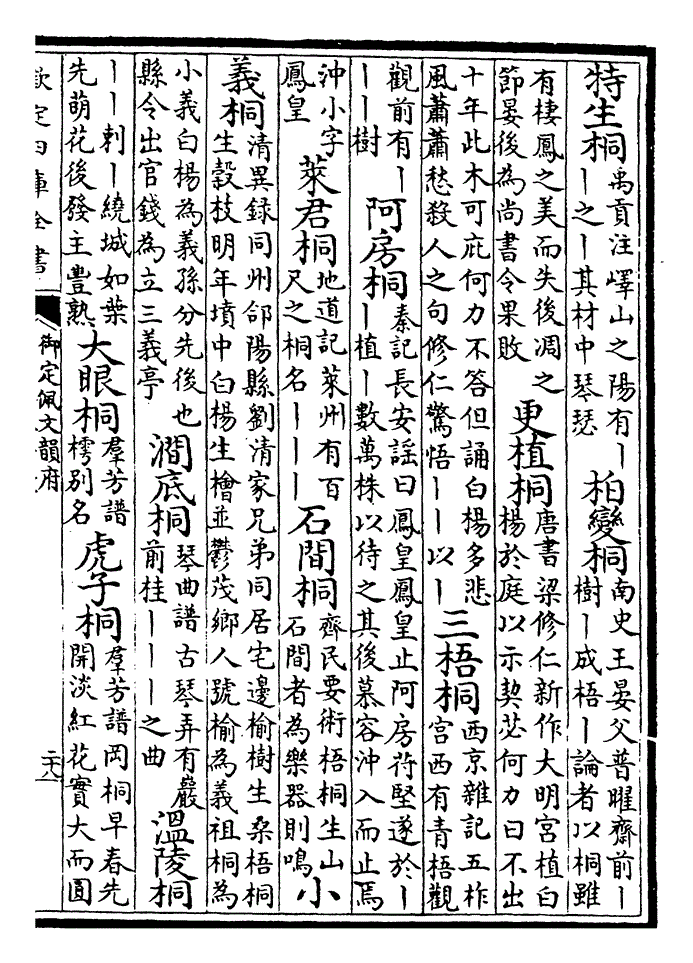 特生桐
禹貢注嶧山之陽有丨
丨之丨其材中琴瑟
柏變桐
南史王晏父普曜齋前丨
樹丨成梧丨論者以桐雖
有棲鳳之美而失後凋之
節晏後為尚書令果敗
更植桐
唐書梁修仁新作大明宮植白
楊於庭以示契苾何力曰不出
十年此木可庇何力不答但誦白楊多悲
風蕭蕭愁殺人之句修仁驚悟丨丨以丨
三梧桐
西京雜記五柞
宮西有青梧觀
觀前有丨
丨丨樹
阿房桐
秦記長安謠曰鳳皇鳳皇止阿房苻堅遂於丨
丨植丨數萬株以待之其後慕容沖入而止焉
沖小字
鳳皇
萊君桐
地道記萊州有百
尺之桐名丨丨丨
石間桐
齊民要術梧桐生山
石間者為樂器則鳴
小
義桐
清異録同州郃陽縣劉清家兄弟同居宅邊榆樹生桑梧桐
生榖枝明年墳中白楊生檜並鬱茂鄉人號榆為義祖桐為
小義白楊為義孫分先後也
縣令出官錢為立三義亭
澗底桐
琴曲譜古琴弄有巖
前桂丨丨丨之曲
溫陵桐
丨丨刺丨繞城如葉
先萌花後發主豐熟
大眼桐
羣芳譜
樗别名
虎子桐
羣芳譜岡桐早春先
開淡紅花實大而圓
欽定四庫全書
御定佩文韻府
二十八